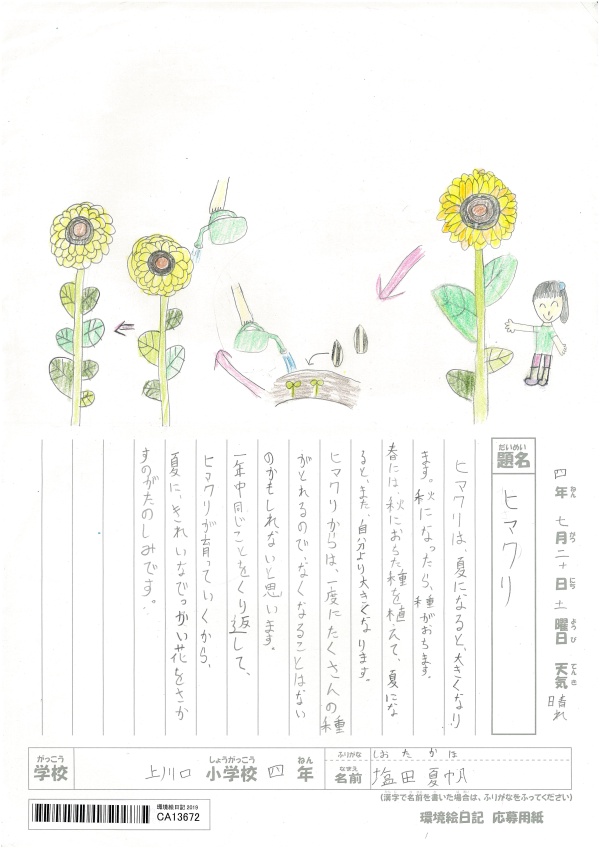 四年 七月二十日 土曜日 天気 晴れ
ねん がつ にち ようび てんき
だいめい
題名
ヒマワリ
ヒマワリは、夏になると、大きくなり
ます。秋になったら、種がおちます。
春には、秋におちた種を植えて、夏にな
ると、また、自分より大きくなります。
ヒマワリからは、一度にたくさんの種
がとれるので、なくなることはない
のかもしれないと思います。
一年中同じことをくり返して、
ヒマワリが育っていくから、
夏に、きれいなでっかい花をさか
すのがたのしみです。
がっこう しょうがっこう ねん
学校 上川口 小学校 四 年
ふりがな しおたかほ
なまえ
名前 塩田夏帆
(漢字で名前を書いた場合は、ふりがなをふってください)
環境絵日記 2019
CA13672
環境絵日記 応募用紙